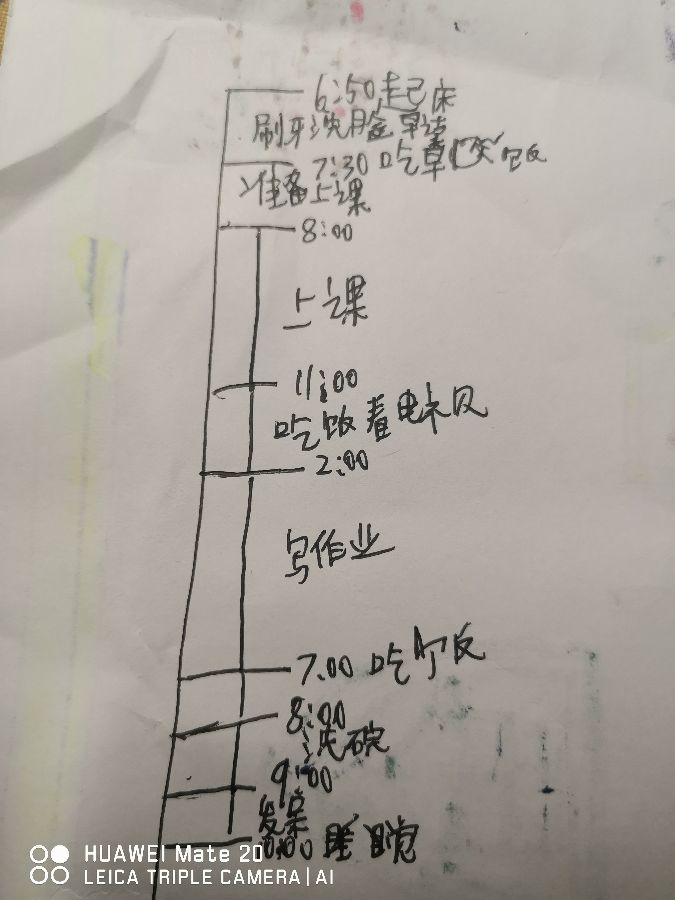 6:50起床
刷牙洗脸早读
7:30吃早饭
准备上课
8:00
上课
11:00
吃饭看电视
2:00
写作业
7.00吃饭
8:00
洗碗
9:00
发呆
10:00睡觉
HUAWEI Mate 20
LEICA TRIPLE CAMERA | AI